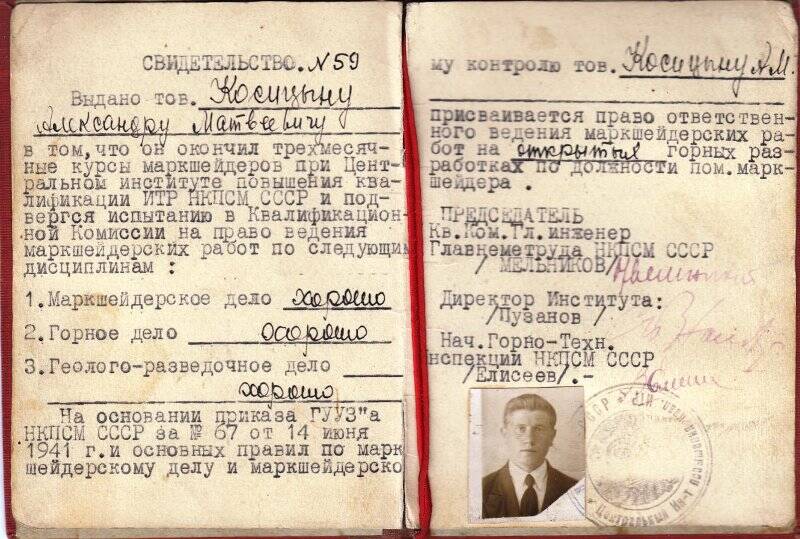 СВИДЕТЕЛЬСТВО. N 59
Выдано тов. Косицыну
Александру Матвеевичу
в том, что он окончил трехмесяч-
ные курсы маркшейдеров при Цент-
ральном институте повышения ква-
лификации ИТР НКПСМ СССР и под-
вергся испытанию в Квалификацион-
ной Комиссии на право ведения
маркшейдерских работ по следующим
дисциплинам :
1. Маркшейдерское дело хорошо
2. Горное дело хорошо
3. Геолого-разведочное дело
хорошо
На основании приказа ГУУЗ"а
НКПСМ СССР за № 67 от 14 июня
1941 г. и основных правил по марк
шейдерскому делу и маркшейдерско
му контролю тов. Косицыну А.М.
присваивается право ответствен-
ного ведения маркшейдерских ра-
бот на открытых горных раз-
работках по должности пом. марк-
шейдера .
ПРЕДСЕДАТЕЛЬ
Кв. Ком. Гл. инженер
Главнеметруда НКПСМ СССР
/ МЕЛЬНИКОВ/
Директор Института:
/Пузанов /
Нач. Горно-Техн.
нспекций НКПСМ СССР
/Елисеев/ .-
Центральный Ин-т